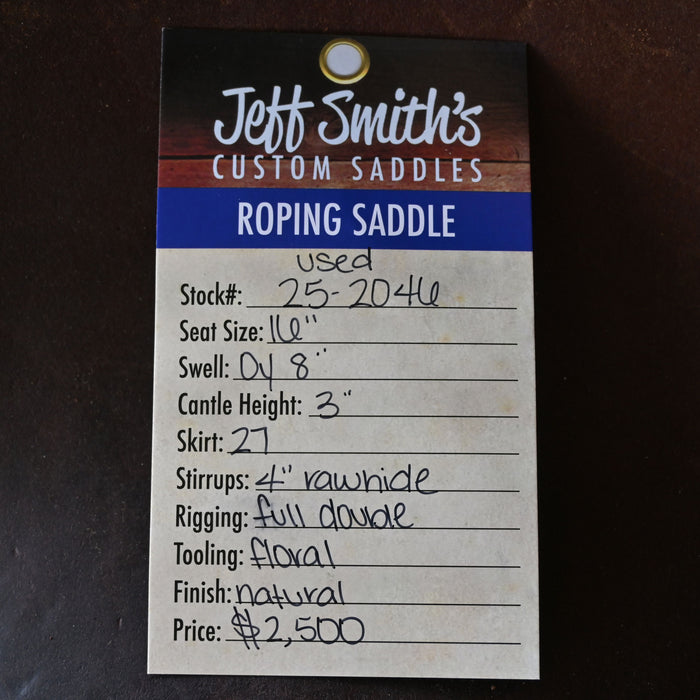 Jeff Smith's
CUSTOM SADDLES
ROPING SADDLE
used
Stock#: 25-2046
Seat Size: 16"
Swell: Oy 8"
Cantle Height: 3"
Skirt: 27
Stirrups: 4" rawhide
Rigging: full double
Tooling: floral
Finish: natural
Price: $2,500